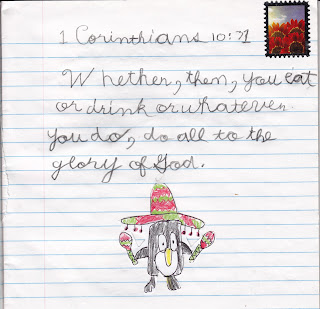 1 Corinthians 10:31
Whether, then, you eat
or drink or whatever
you do, do all to the
glory of God.